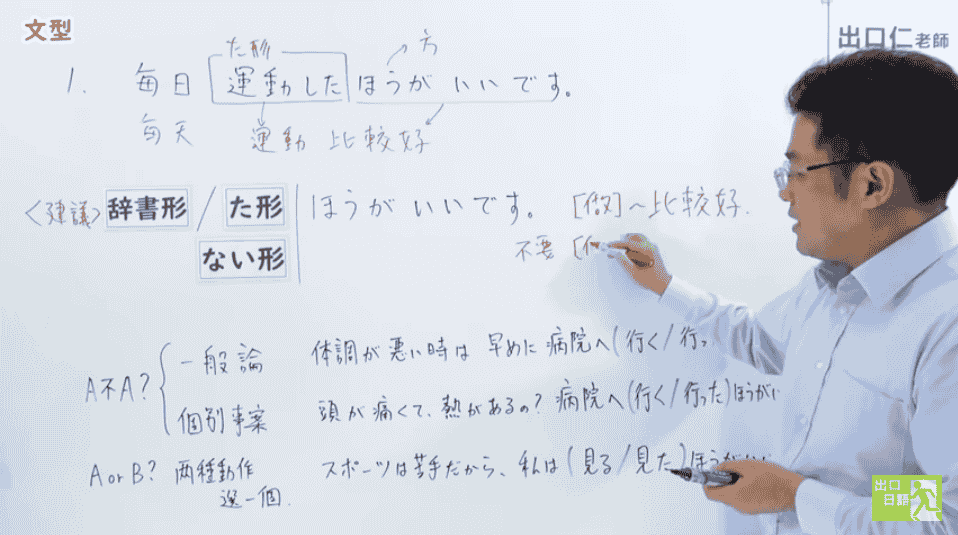 文型
出口仁老師
た形
方
1. 毎日 運動した ほうが いいです。
毎天 運動 比較好
<建議> 辞書形 / た形 ほうが いいです。 [做]~比較好.
ない形 不要 [
A不A? 一般論 体調が 悪い時は 早めに 病院へ(行く/行っ
個別事案 頭が痛くて、熱があるの? 病院へ(行く/行った)ほうがい
A or B? 両種動作 スポーツは苦手だから、私は(見る/見た)ほうが
選一個.
出口
日語